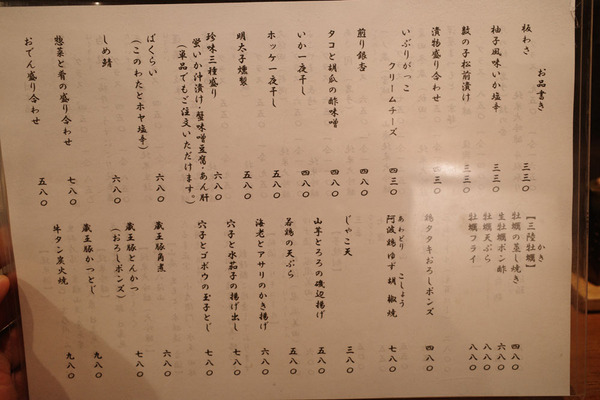 お品書き
板わさ 三三〇
柚子風味いか塩辛 三三〇
数の子松前漬け 四三〇
漬物盛り合わせ 四三〇
いぶりがっこ
クリームチーズ 四三〇
煎り銀杏 四八〇
タコと胡瓜の酢味噌 四八〇
いか一夜干し 四八〇
ホッケ一夜干し 五八〇
明太子燻製 五八〇
珍味三種盛り 六八〇
蛍いか汁漬け・蟹味噌豆腐・あん肝
(単品でもご注文いただけます。)
ばくらい
(このわたとホヤ塩辛) 六八〇
しめ鯖 六八〇
惣菜と肴の盛り合わせ 七八〇
おでん盛り合わせ 五八〇
【三陸牡蠣】
かき
牡蠣の蒸し焼き 四八〇
生牡蠣ポン酢 六八〇
牡蠣天ぷら 八八〇
牡蠣フライ 八八〇
鶏タタキおろしポンズ 四八〇
阿波鶏ゆず胡椒焼 七八〇
あわどり こしょう
じゃこ天 三八〇
山芋とろろの磯辺揚げ 五八〇
若鶏の天ぷら 五八〇
海老とアサリのかき揚げ 六八〇
穴子と水茄子の揚げ出し 七八〇
穴子とゴボウの玉子とじ 七八〇
蔵王豚角煮 六八〇
蔵王豚とんかつ
(おろしポンズ) 七八〇
蔵王豚かつとじ 九八〇
牛タン炭火焼 九八〇